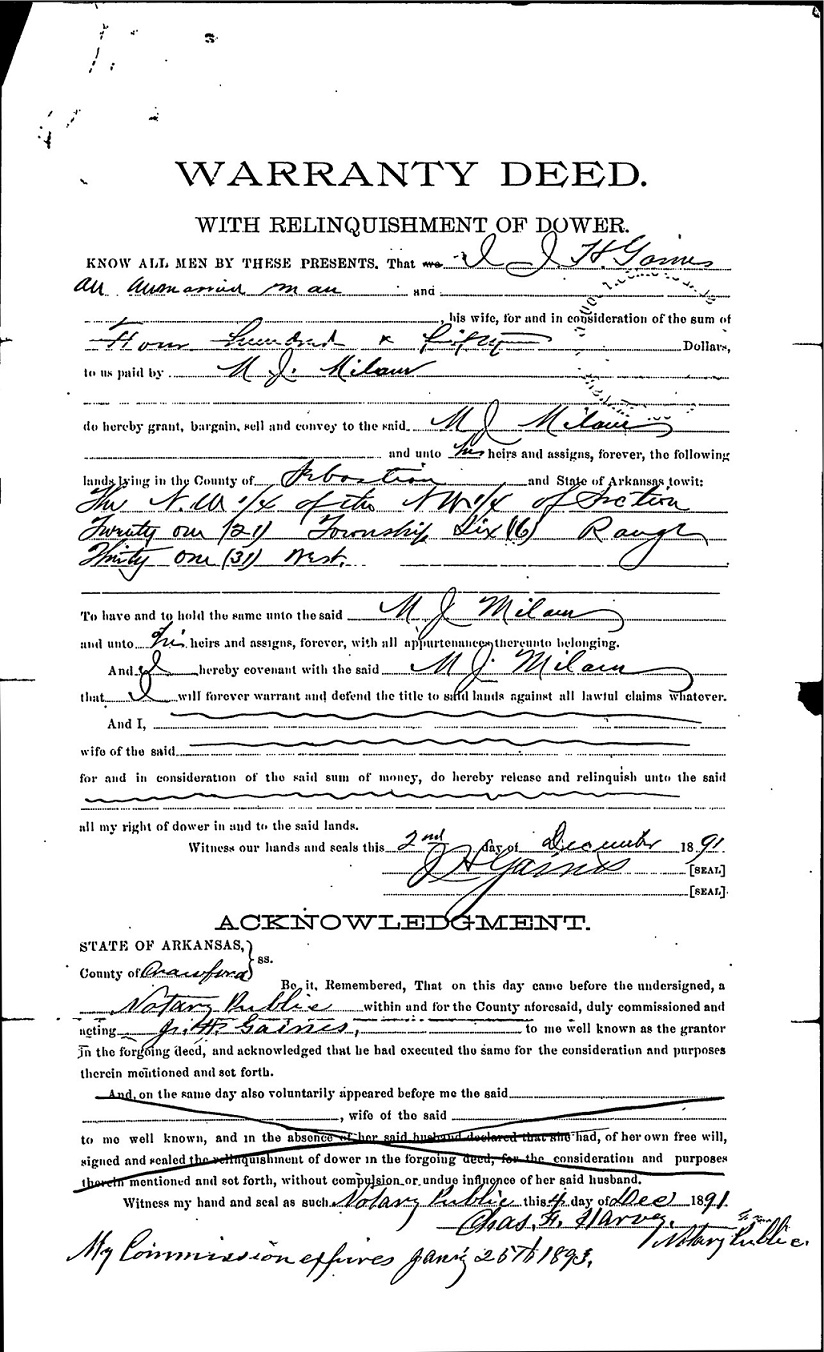 WARRANTY DEED.
WITH RELINQUISHMENT OF DOWER.
KNOW ALL MEN BY THESE PRESENTS. That we I J. H. Gaines
an unmarried man and
, his wife, for and in consideration of the sum of
Four hundred & fifty Dollars,
to us paid by M J. Milam
do hereby grant, bargain, sell and convey to the said M J Milam
and unto his heirs and assigns, forever, the following
lands lying in the County of Sebastian and State of Arkansas towit:
The N.W 1/4 of the NW 1/4 of Section
Twenty one (21) Township Six (6) Range
Thirty one (31) West.
To have and to hold the same unto the said M J Milam
and unto his heirs and assigns, forever, with all appurtenances thereunto belonging.
And I hereby covenant with the said M J. Milam
that I will forever warrant and defend the title to said lands against all lawful claims whatever.
And I,
wife of the said
for and in consideration of the said sum of money, do hereby release and relinquish unto the said
all my right of dower in and to the said lands.
Witness our hands and seals this 2nd day of December 1891
J H Gaines [SEAL]
[SEAL]
ACKNOWLEDGMENT.
STATE OF ARKANSAS, } ss.
County of Crawford
Be it, Remembered, That on this day came before the undersigned, a
Notary Public within and for the County aforesaid, duly commissioned and
acting J. H. Gaines, to me well known as the grantor
in the forgoing deed, and acknowledged that he had executed the same for the consideration and purposes
therein mentioned and set forth.
And, on the same day also voluntarily appeared before me the said
, wife of the said
to me well known, and in the absence of her said husband declared that she had, of her own free will,
signed and sealed the relinquishment of dower in the forgoing deed, for the consideration and purposes
therein mentioned and set forth, without compulsion or undue influence of her said husband.
Witness my hand and seal as such Notary Public this 4 day of Dec 1891.
Chas. F. Harvey.
Notary Public.
My Commission expires Jan'y 25th 1893.